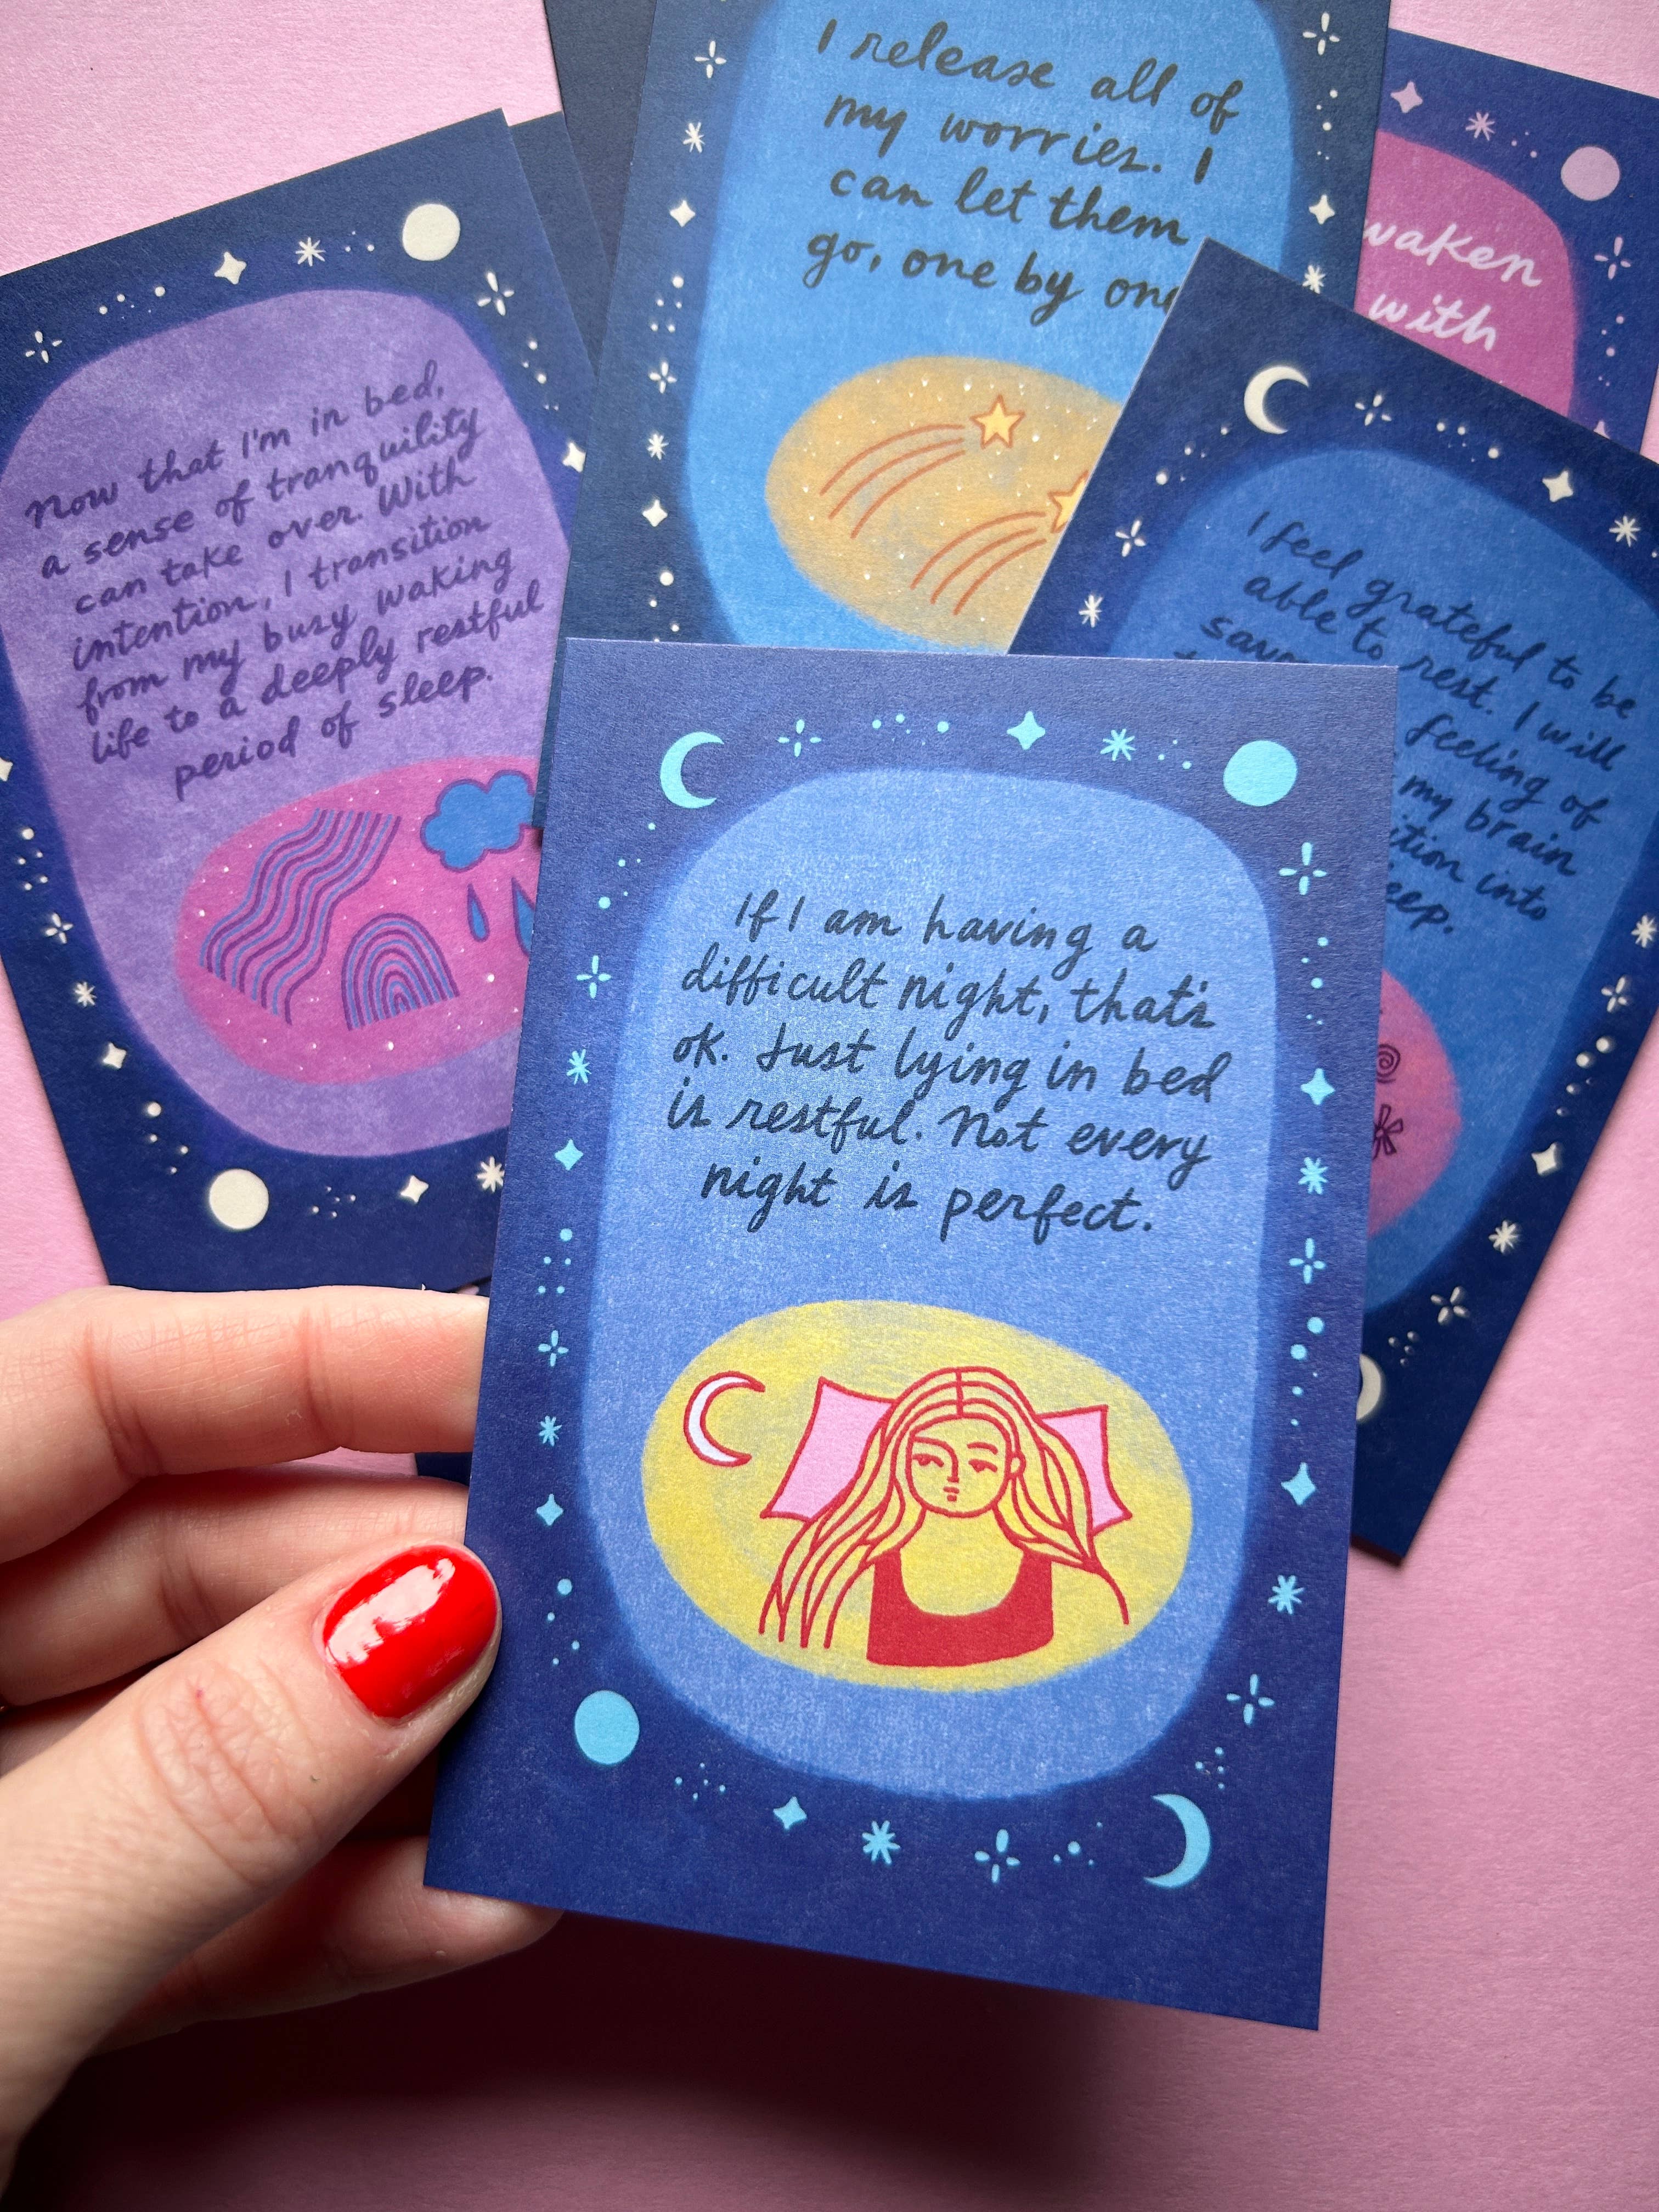 I release all of
my worries. I
can let them
go, one by one
waken
with
Now that I'm in bed,
a sense of tranquility
can take over. With
intention, I transition
from my busy waking
life to a deeply restful
period of sleep.
I feel grateful to be
able to rest. I will
feeling of
my brain
into
If I am having a
difficult night, that's
ok. Just lying in bed
is restful. Not every
night is perfect.